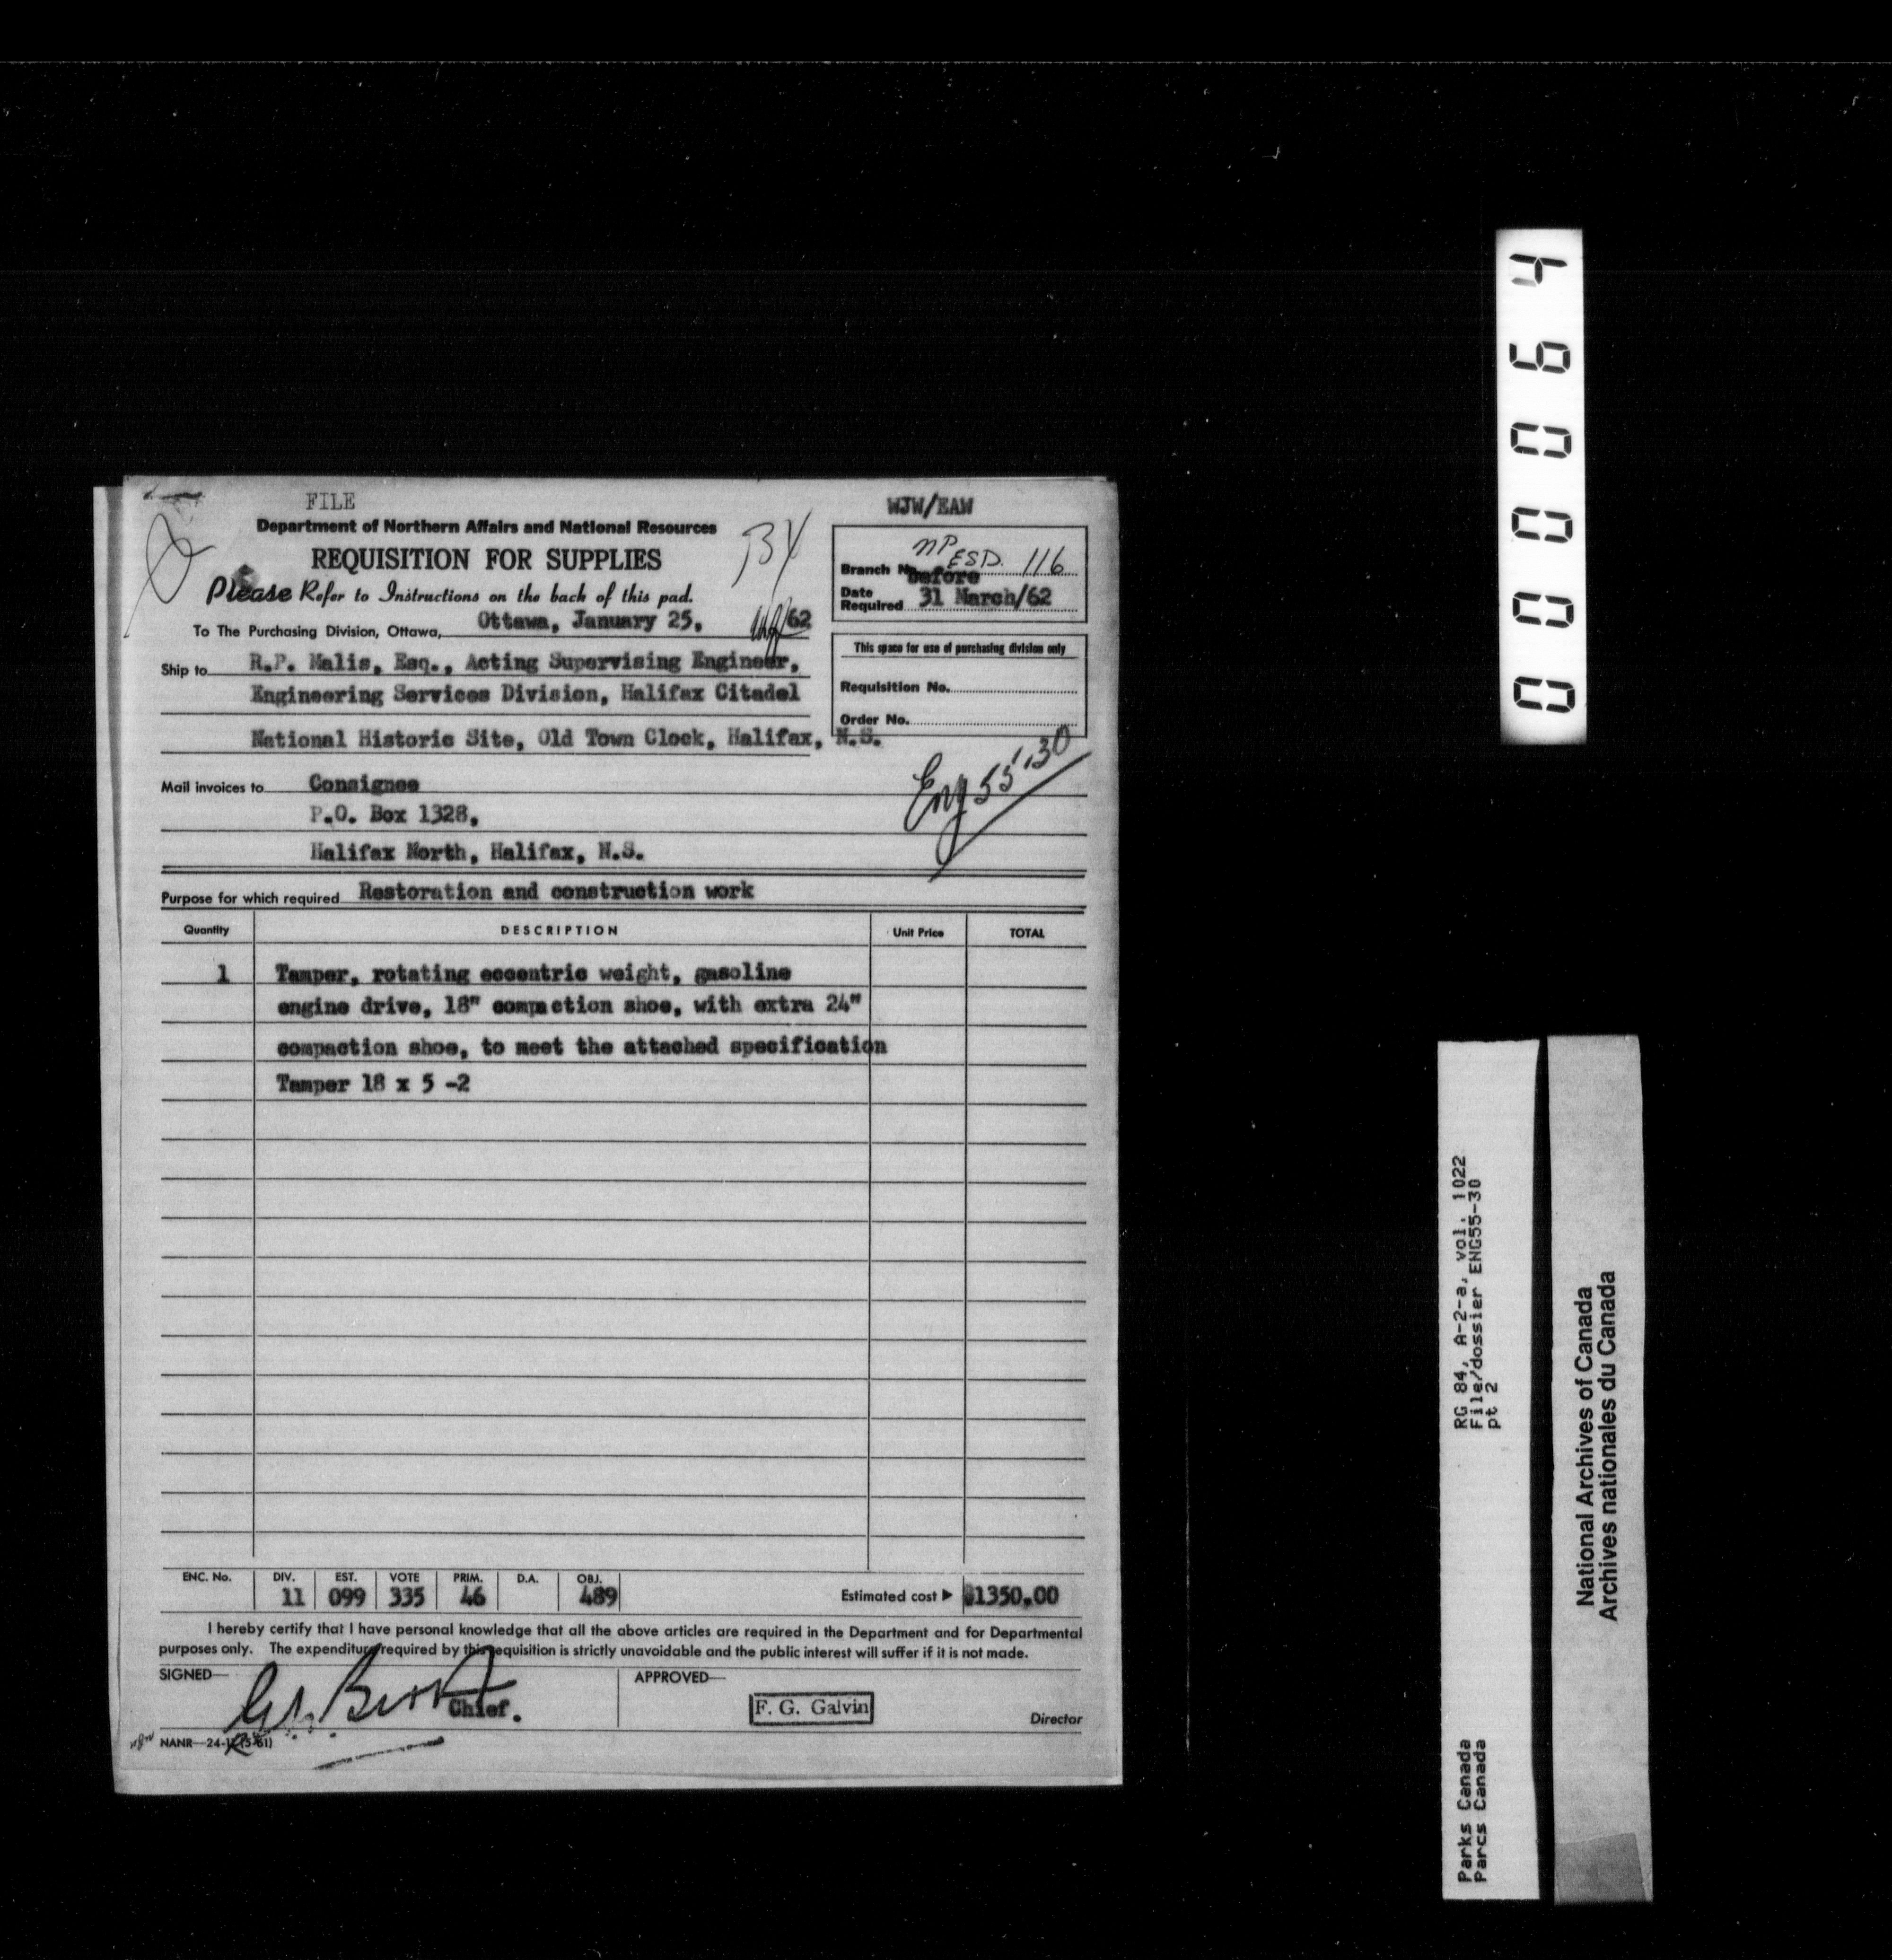 FILE
WJW/EAW
Department of Northern Affairs and National Resources
REQUISITION FOR SUPPLIES
Please Refer to Instructions on the back of this pad.
34
Branch No. NP ESD. 116
Before
Date Required 31 March/62
To The Purchasing Division, Ottawa, Ottawa, January 25, /62
Ship to R.P. Malis, Esq., Acting Supervising Engineer,
Engineering Services Division, Halifax Citadel
National Historic Site, Old Town Clock, Halifax, N.S.
This space for use of purchasing division only
Requisition No.
Order No.
Eng 55-30
Mail invoices to Consignee
P.O. Box 1328,
Halifax North, Halifax, N.S.
Purpose for which required Restoration and construction work
Quantity DESCRIPTION Unit Price TOTAL
1 Tamper, rotating eccentric weight, gasoline
engine drive, 18" compaction shoe, with extra 24"
compaction shoe, to meet the attached specification
Tamper 18 x 5 -2
ENC. No. DIV. EST. VOTE PRIM. D.A. OBJ.
11 099 335 46 489 Estimated cost ▶ $1350.00
I hereby certify that I have personal knowledge that all the above articles are required in the Department and for Departmental
purposes only. The expenditure required by this requisition is strictly unavoidable and the public interest will suffer if it is not made.
SIGNED— APPROVED—
Chief.
F. G. Galvin
Director
NANR—24-
000064
RG 84, A-2-a, vol. 1022
File/dossier ENG55-30
pt 2
Parks Canada
Parcs Canada
National Archives of Canada
Archives nationales du Canada